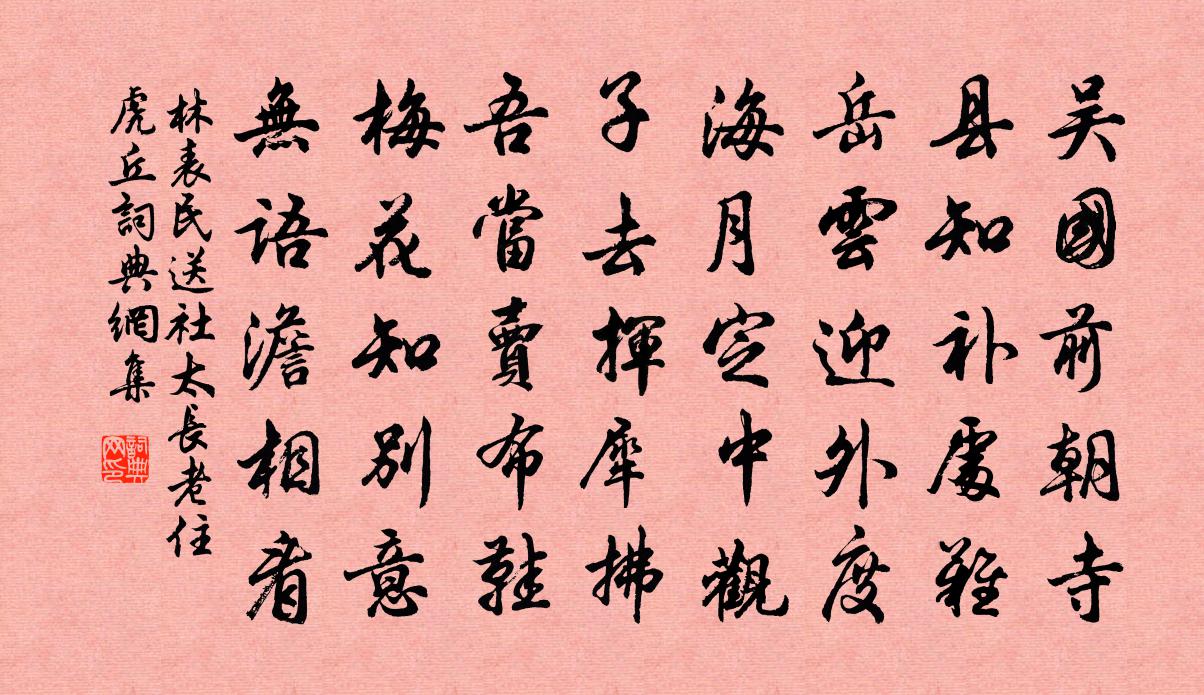 吴國前朝寺
县知补處難
岳雲迎外度
海月定中觀
子去揮犀拂
吾當賣布鞋
梅花知别意
無語澹相看
林表民送社太長老住
虎丘詞典網集
詞典网印